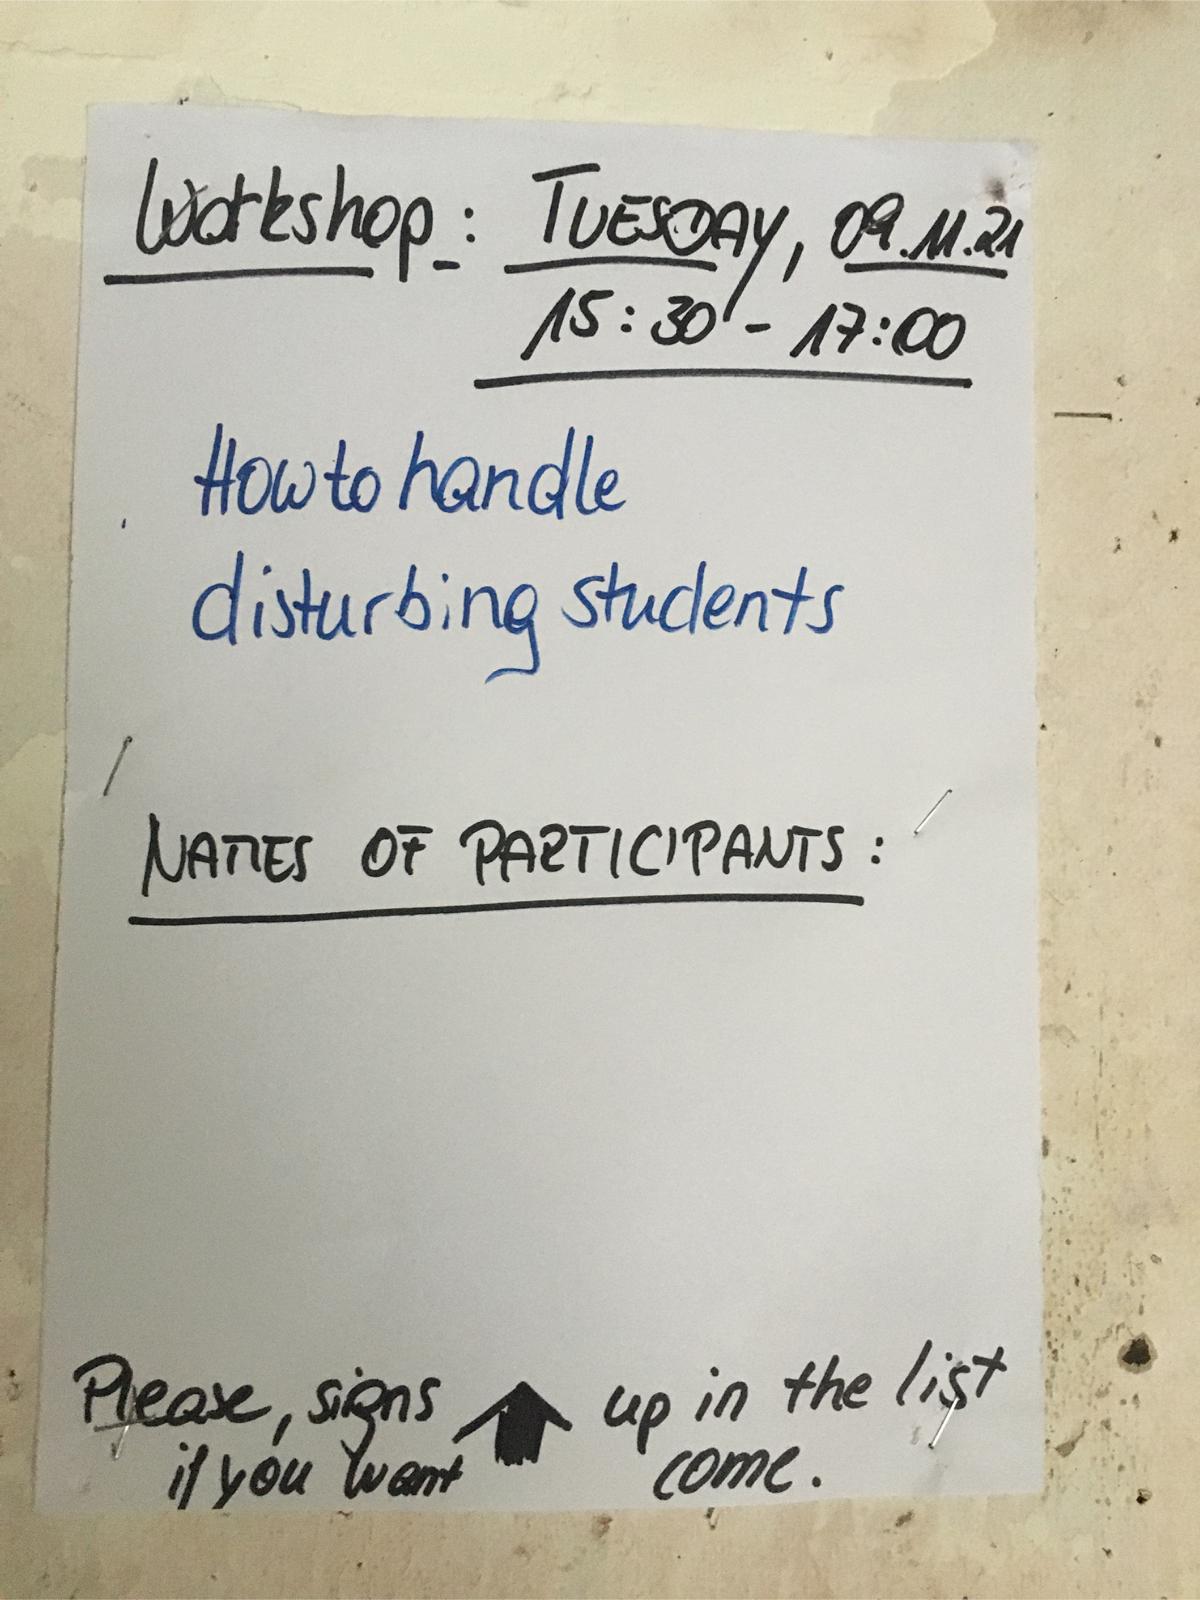 Workshop: TUESDAY, 09.11.21
15:30 - 17:00
How to handle
disturbing students
NAMES OF PARTICIPANTS:
Please, signs up in the list
if you want come.